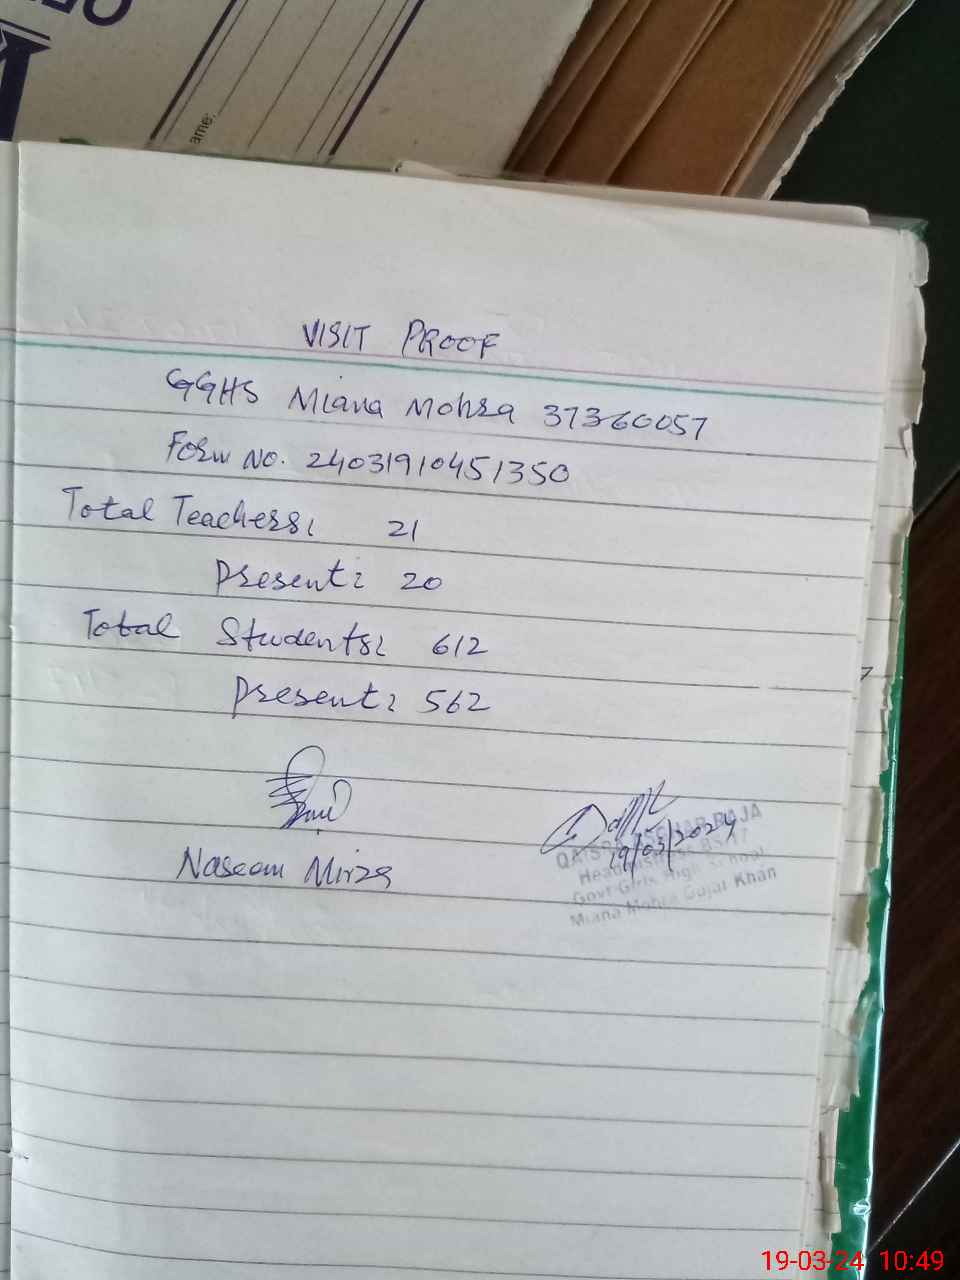 ame:
VISIT PROOF
GGHS Miana Mohra 37360057
Form No. 24031910451350
Total Teachers: 21
Present: 20
Total Students: 612
Present: 562
Naseem Mirza
19/03/2024
RAJA
Headmistress BS-17
Govt Girls High School
Miana Mohra Gujar Khan
19-03-24 10:49